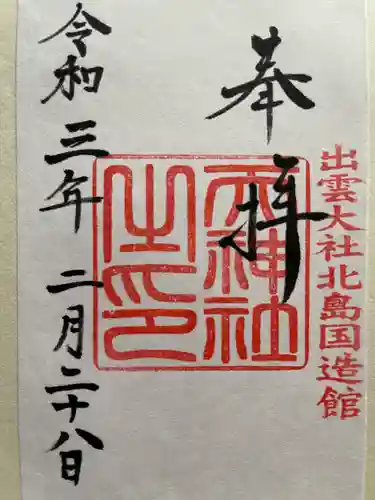 出雲大社北島国造館
奉拝
天神社之印
令和三年二月二十八日